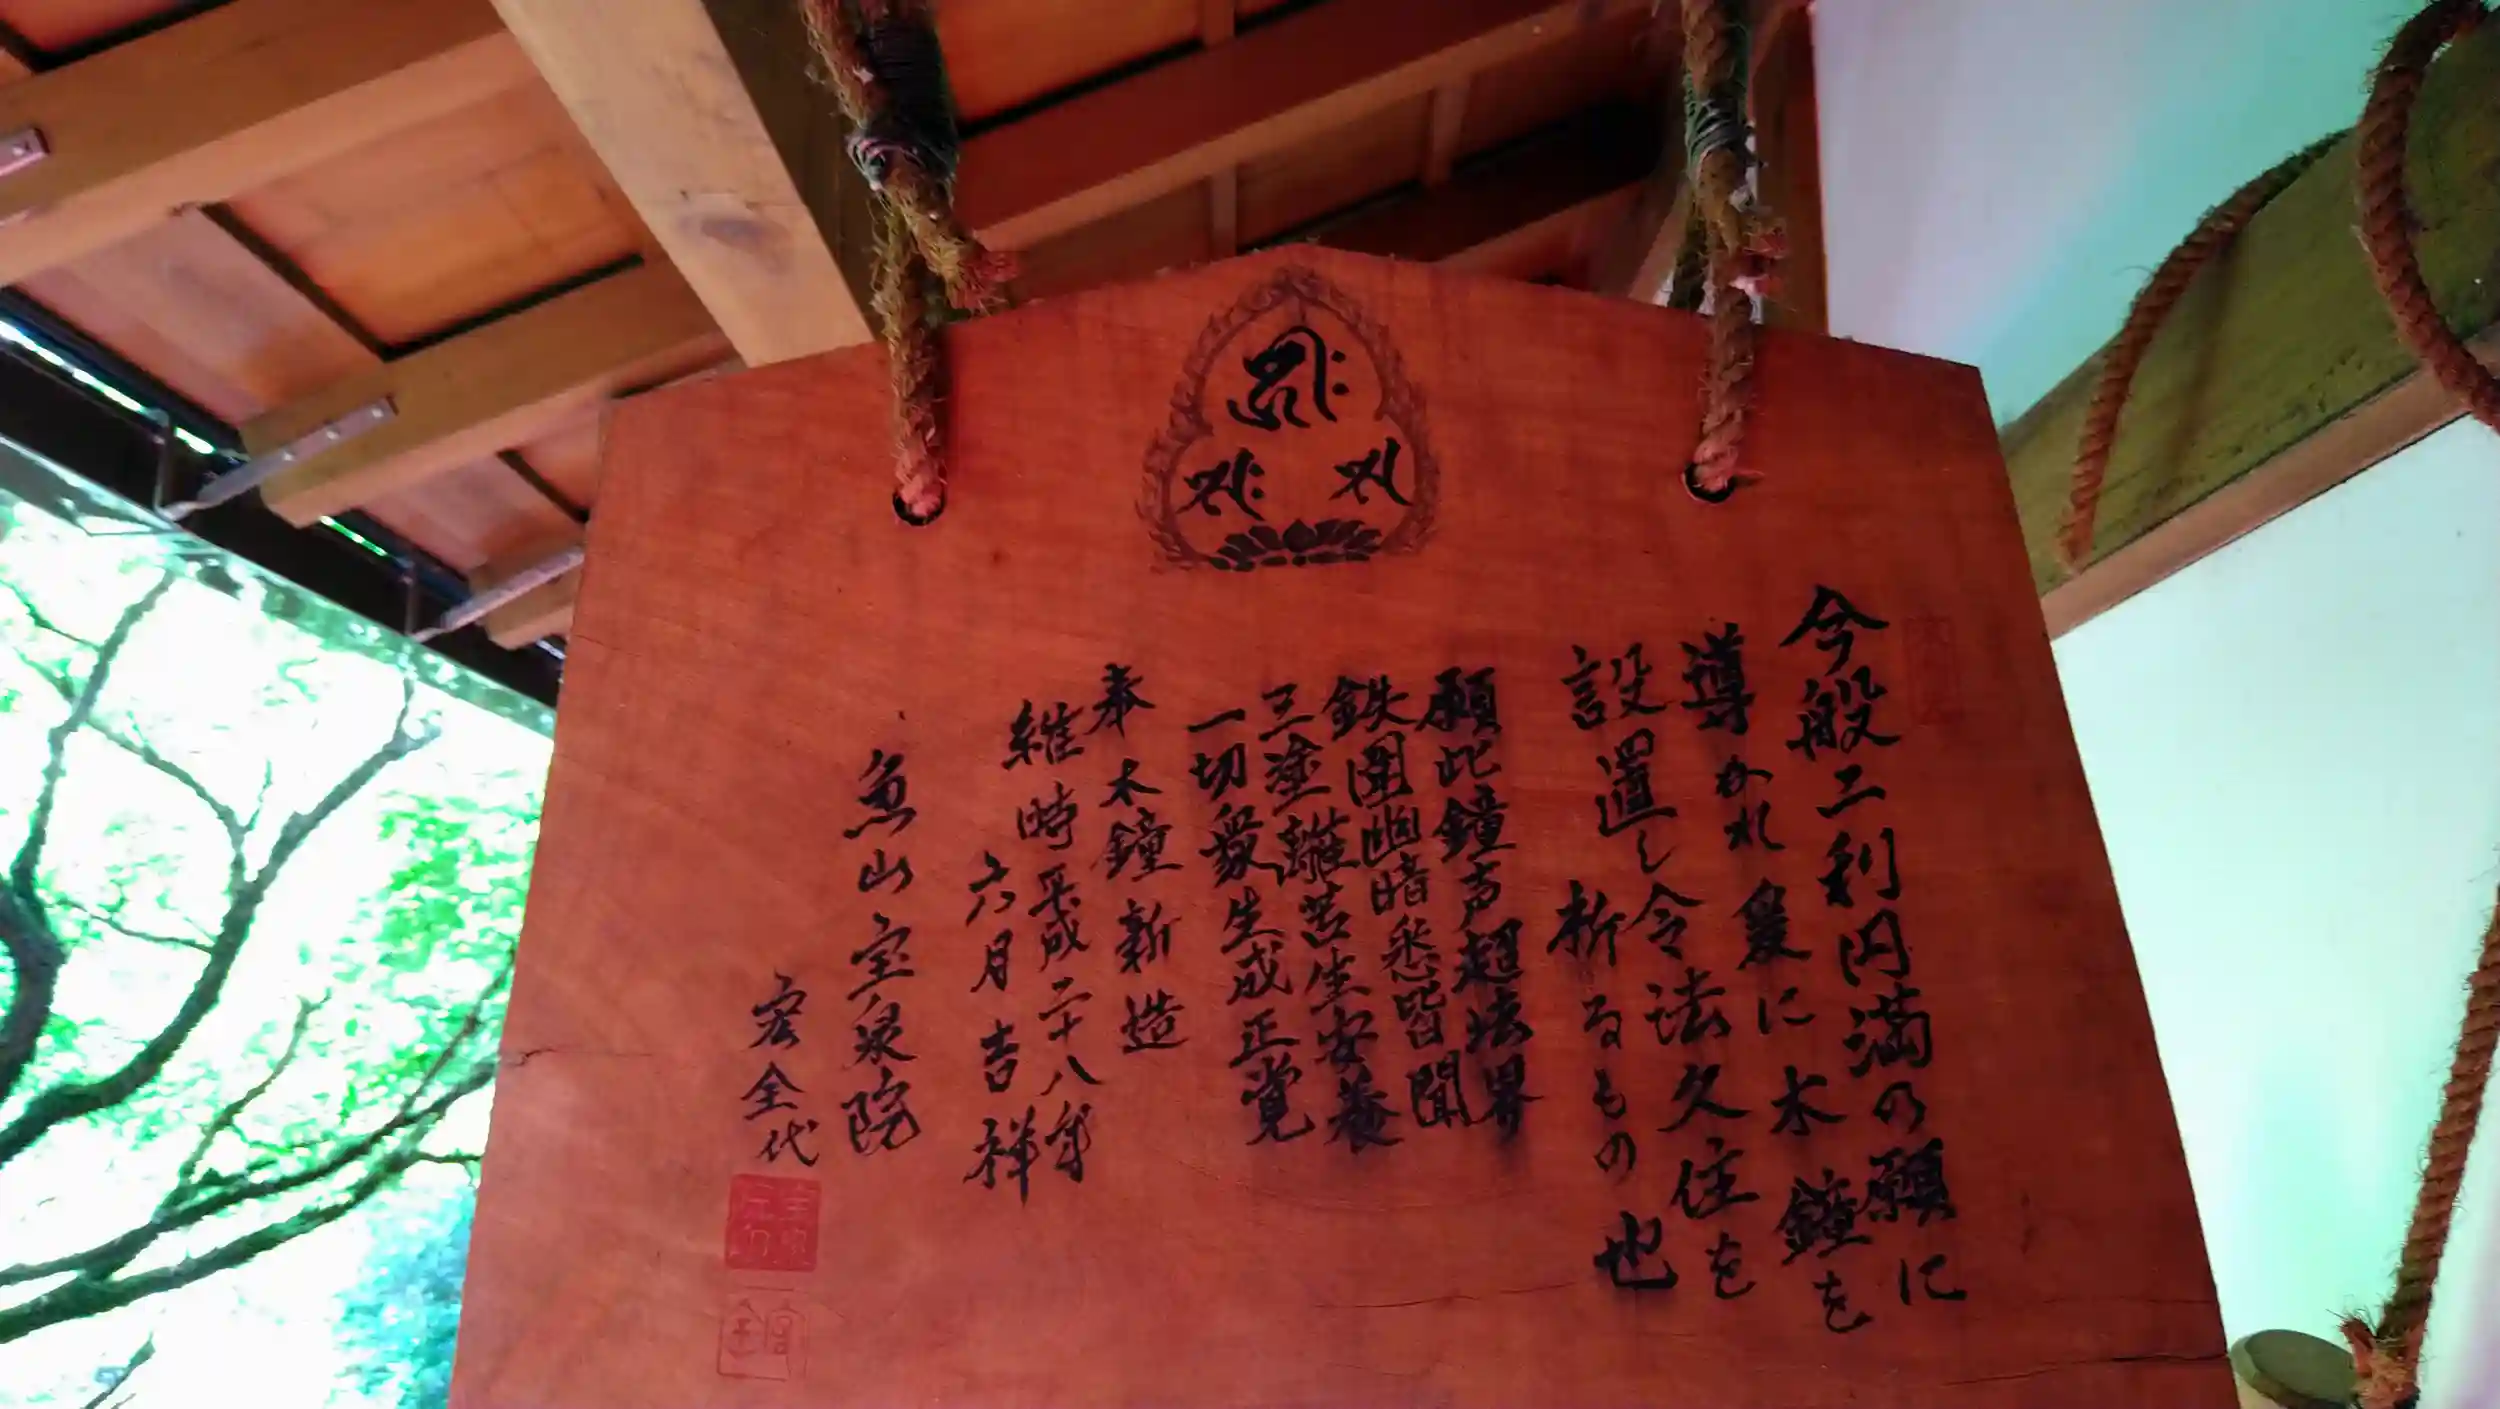 今般二利円満の願に
導かれ爰に木鐘を
設置し令法久住を
祈るもの也
願此鐘声超法界
鉄囲幽暗悉皆聞
三塗離苦生安養
一切衆生成正覚
奉木鐘新造
維時平成二十八年
六月吉祥
魚山宝泉院
宏全代